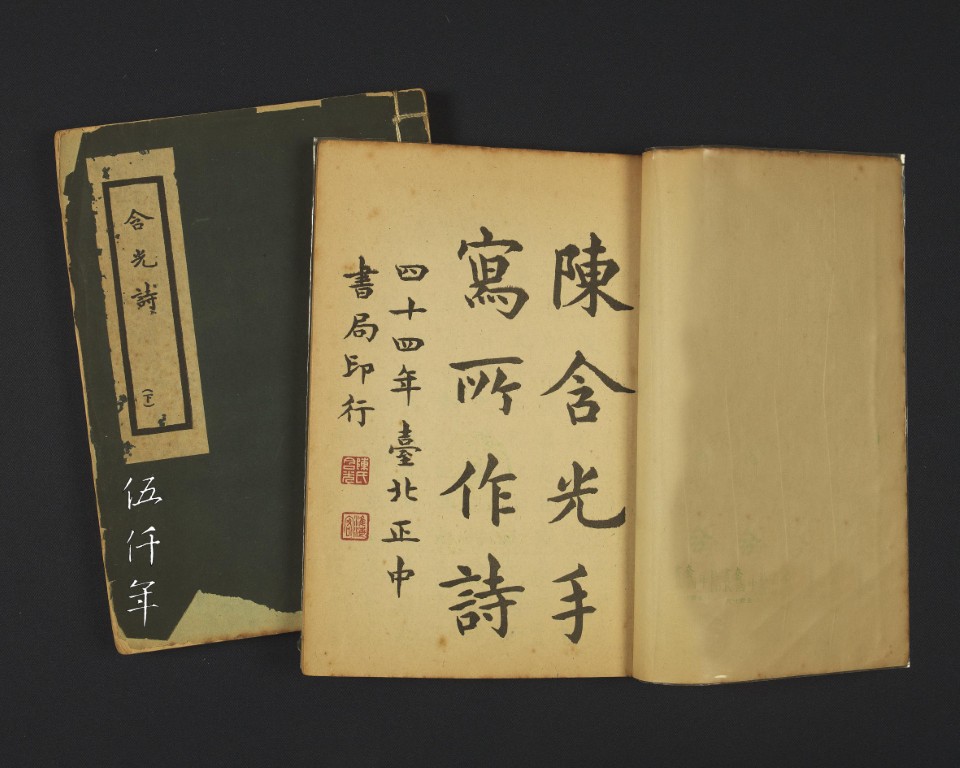 陳含光手
寫所作詩
四十四年臺北正中
書局印行
陳氏含光
含光詩
(下)
伍仟年